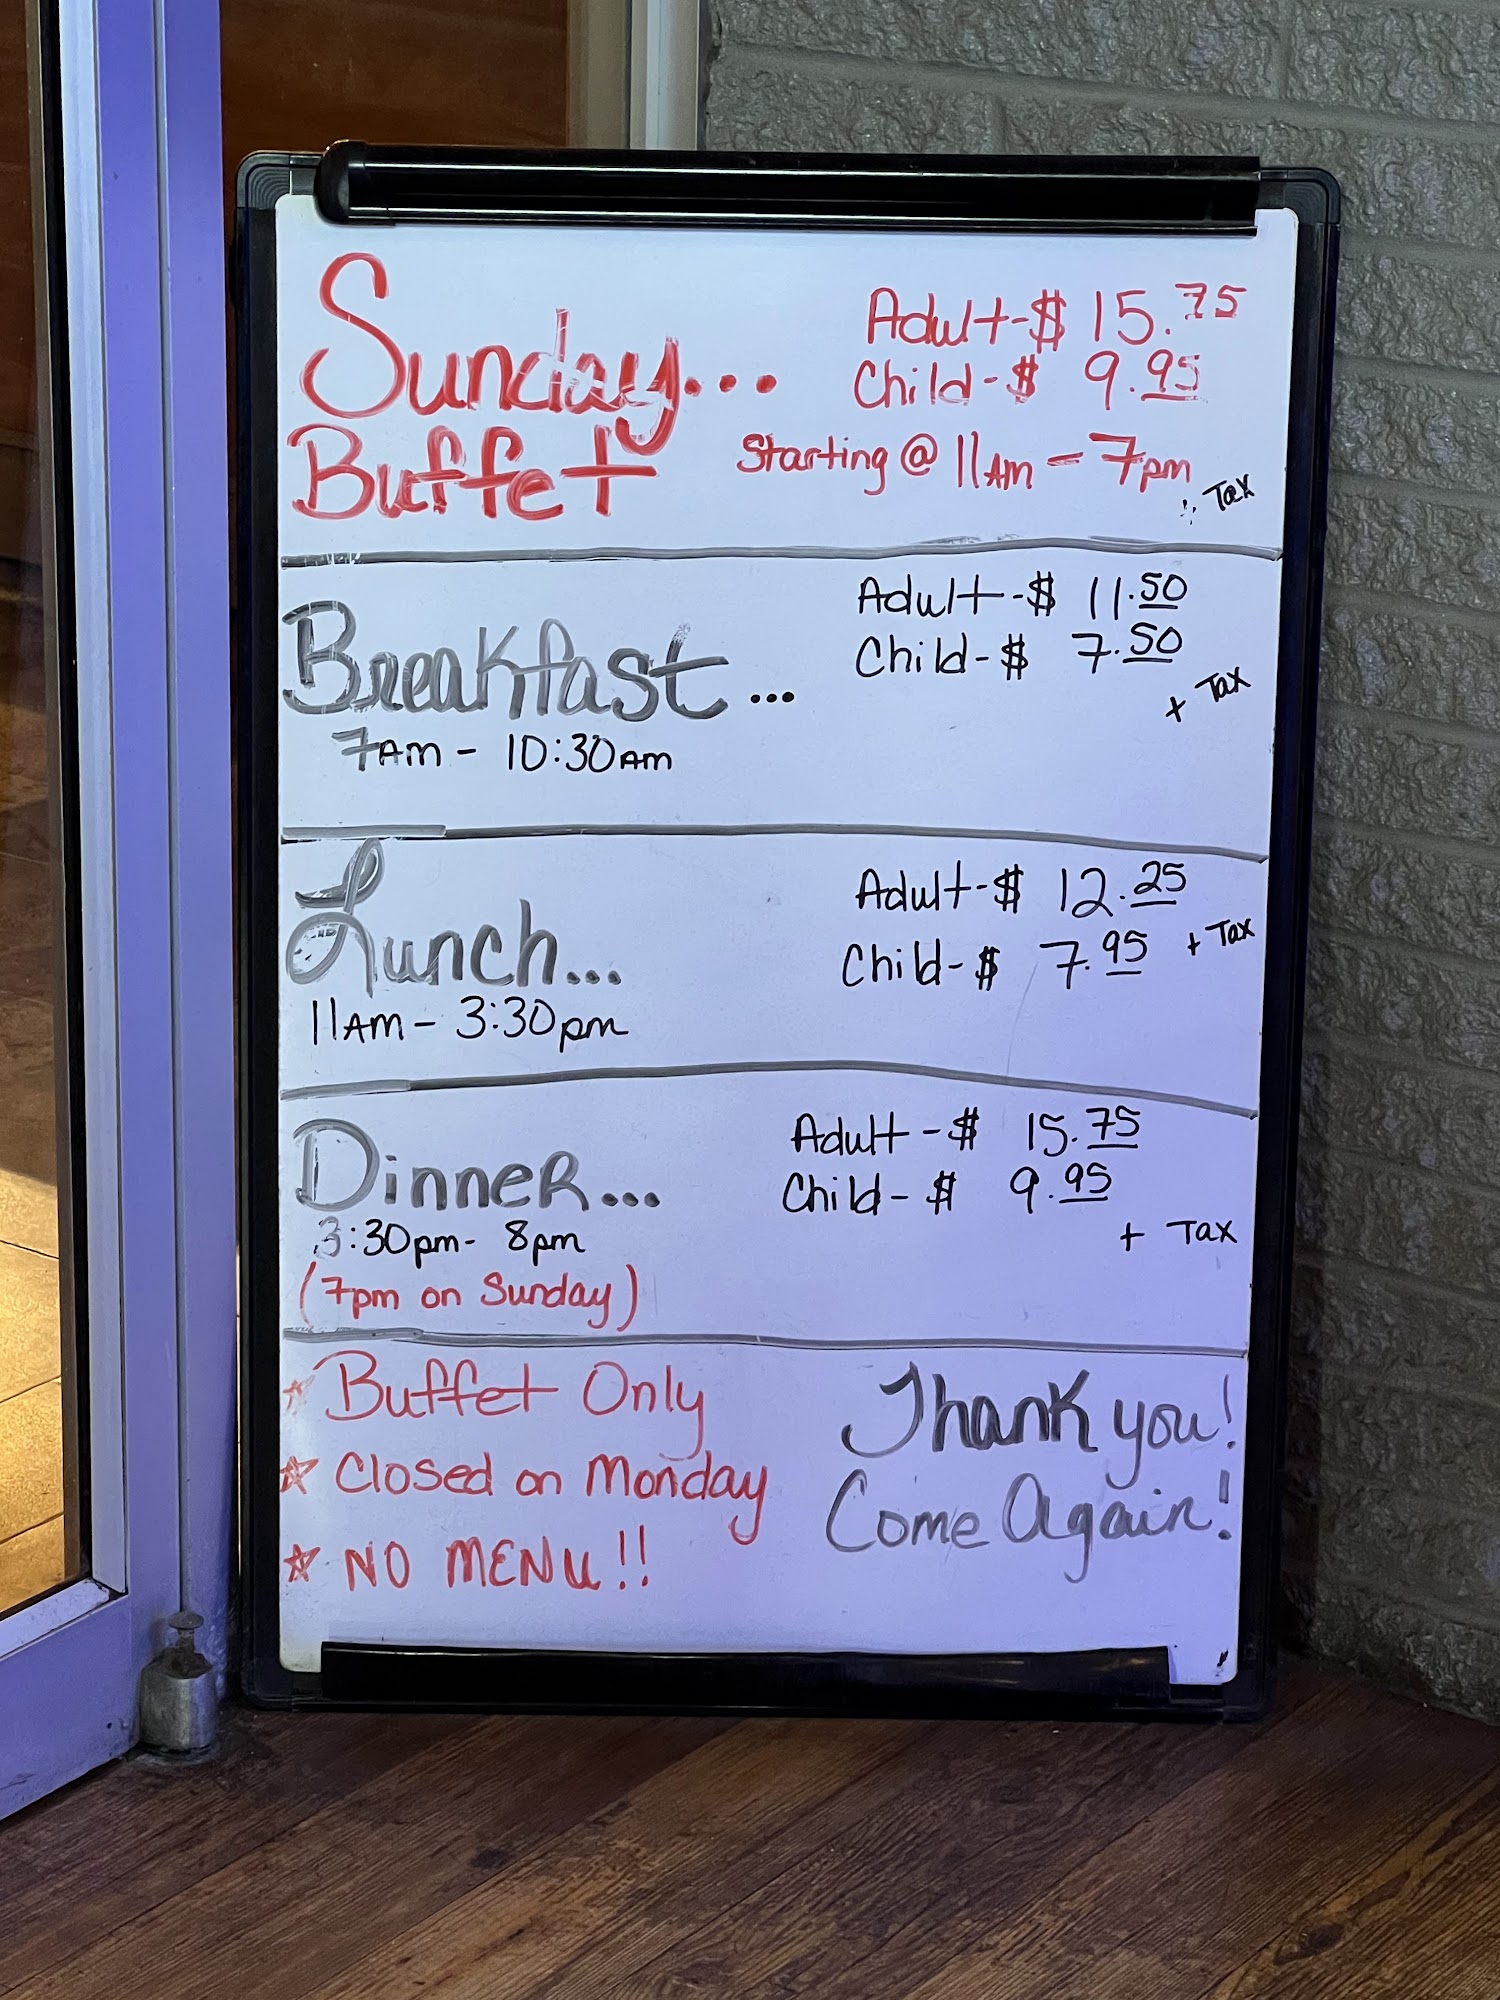 Sunday...
Buffet
Adult-$ 15.75
Child-$ 9.95
Starting @ 11AM - 7pm
+ Tax
Breakfast...
7AM - 10:30AM
Adult-$ 11.50
Child-$ 7.50
+ Tax
Lunch...
11AM - 3:30pm
Adult-$ 12.25
Child-$ 7.95 + Tax
Dinner...
3:30pm - 8pm
(7pm on Sunday)
Adult-$ 15.75
Child-$ 9.95
+ Tax
Buffet Only
Closed on Monday
NO MENU!!
Thank you!
Come Again!